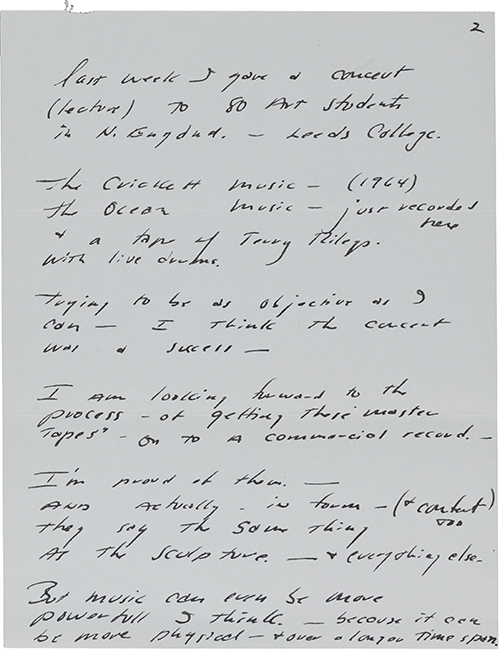 2
last week I gave a concert
(lecture) to 80 Art Students
in N. England. — Leeds College.
The Crickett music — (1964)
the Ocean music — just recorded
here
+ a tape of Terry Rileys.
with live drums.
Trying to be as objective as I
can — I think the concert
was a sucess —
I am looking forward to the
process — of getting these master
Tapes" — on to a commercial record. —
I'm proud of them. —
AND actually - in form — (+ content)
too
they say the same thing
As the sculpture. — + everything else -
But music can even be more
powerfull I think. — because it can
be more physical — + over a longer time span.